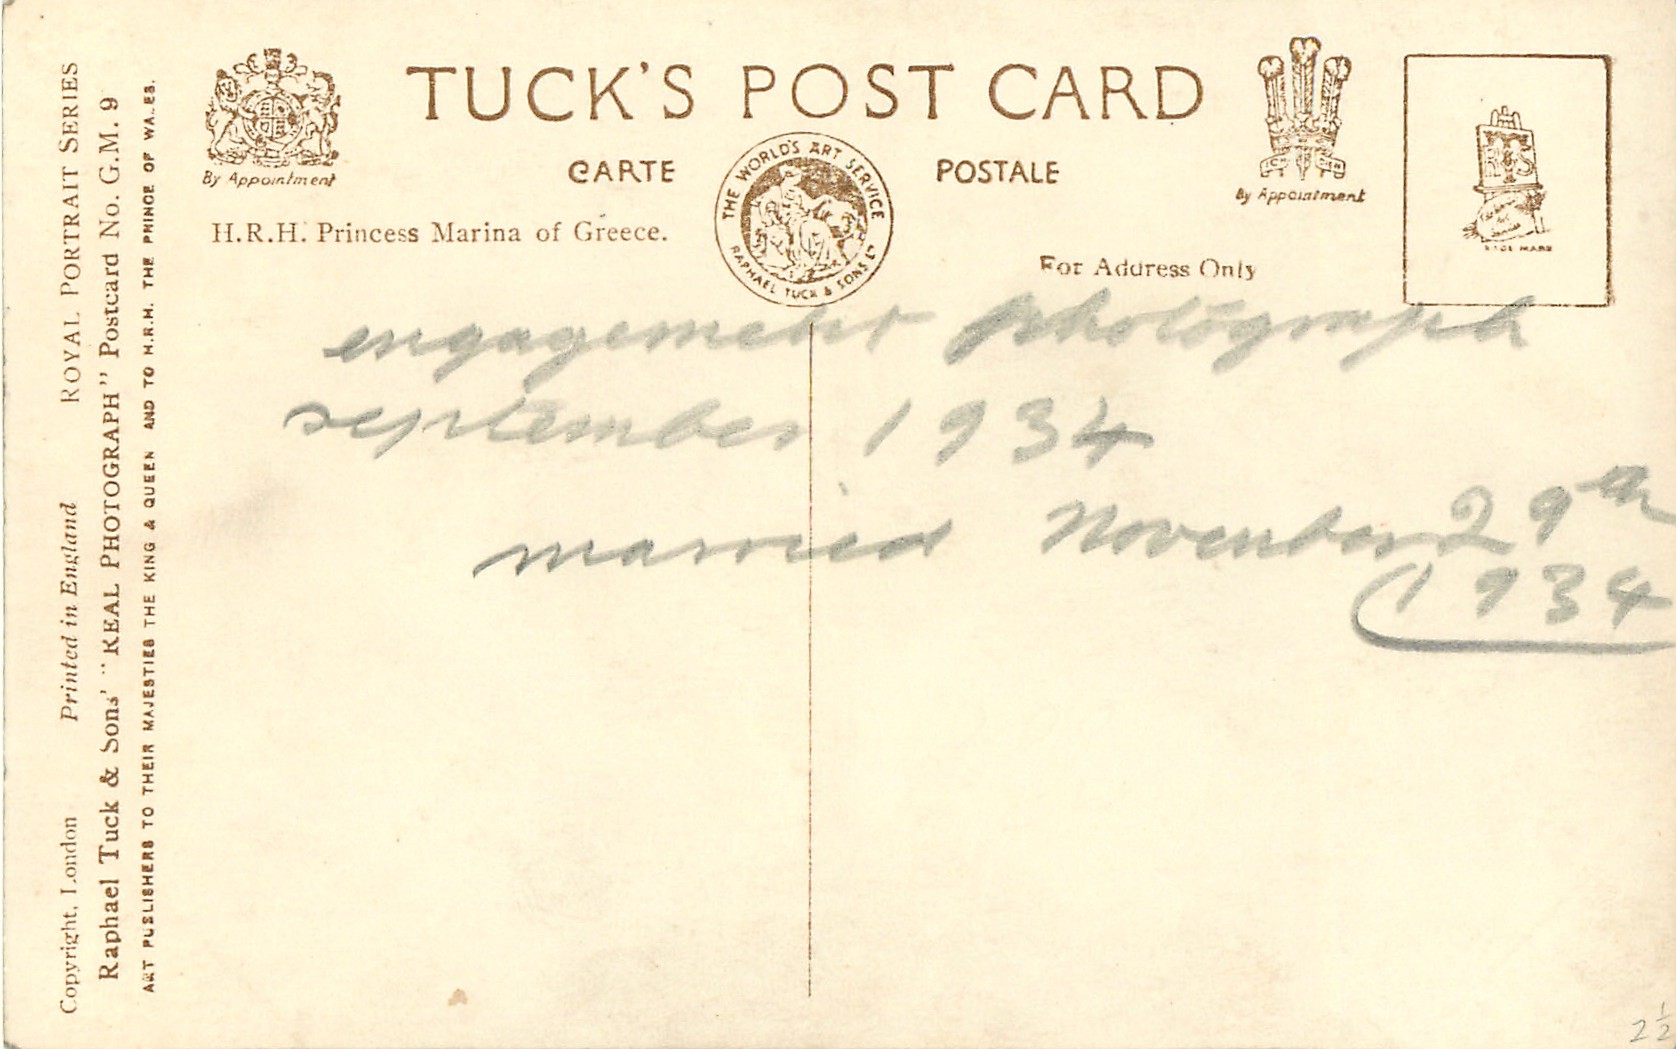 TUCK'S POST CARD
CARTE POSTALE
By Appointment
By Appointment
THE WORLD'S ART SERVICE
RAPHAEL TUCK & SONS LTD
H.R.H. Princess Marina of Greece.
For Address Only
TRADE MARK
engagement photograph
september 1934
married November 29th
1934
Copyright, London Printed in England ROYAL PORTRAIT SERIES
Raphael Tuck & Sons' "REAL PHOTOGRAPH" Postcard No. G.M. 9
ART PUBLISHERS TO THEIR MAJESTIES THE KING & QUEEN AND TO H.R.H. THE PRINCE OF WALES.
2½